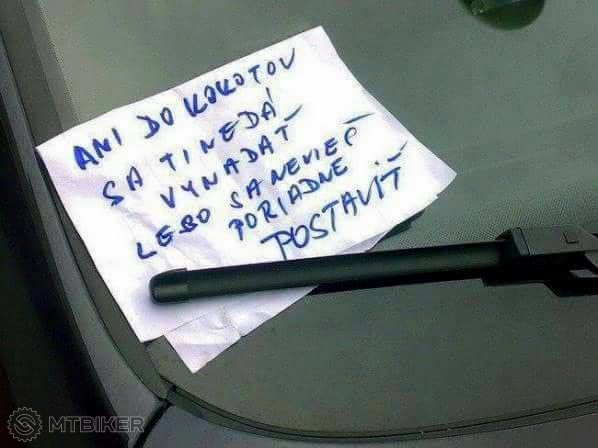 ANI DO KOKOTOV
SA TI NEDÁ
VYNADAŤ
LEBO SA NEVIEŠ
PORIADNE
POSTAVIŤ
MTBIKER